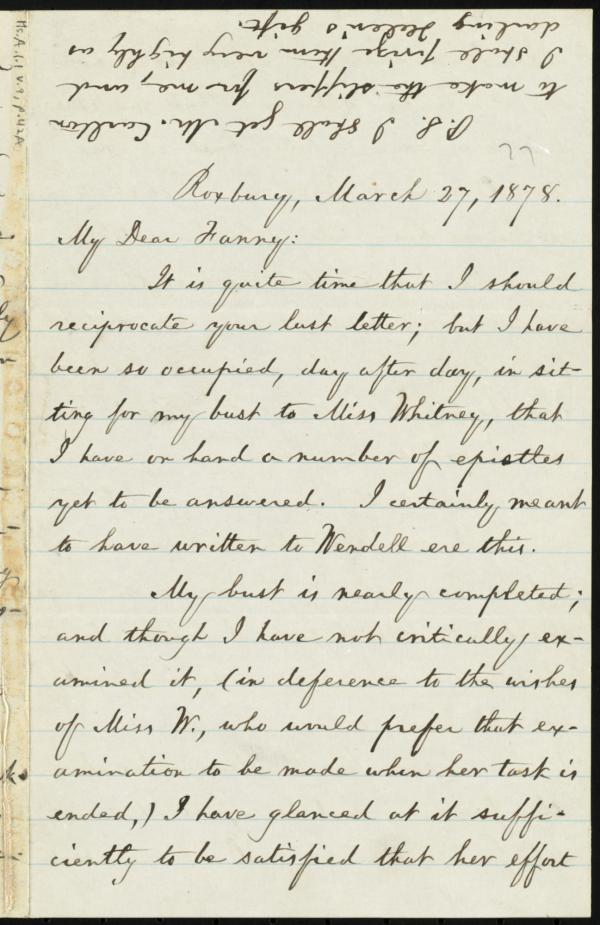 P.S. I shall get Mr. Carlton
to make the slippers for me, and
I shall prize them very highly as
darling Helen's gift.
Roxbury, March 27, 1878.
My Dear Fanny:
It is quite time that I should
reciprocate your last letter; but I have
been so occupied, day after day, in sit-
ting for my bust to Miss Whitney, that
I have on hand a number of epistles
yet to be answered. I certainly meant
to have written to Wendell ere this.
My bust is nearly completed;
and though I have not critically ex-
amined it, (in deference to the wishes
of Miss W., who would prefer that ex-
amination to be made when her task is
ended,) I have glanced at it suffi-
ciently to be satisfied that her effort